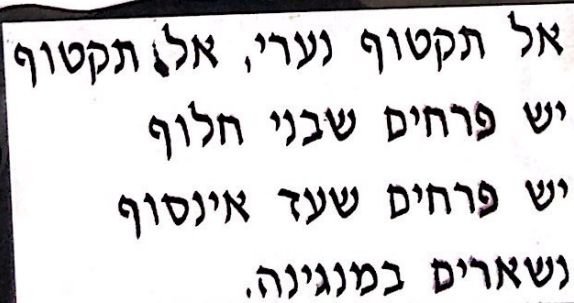 אל תקטוף נערי, אל תקטוף
יש פרחים שבני חלוף
יש פרחים שעד אינסוף
נשארים במנגינה.